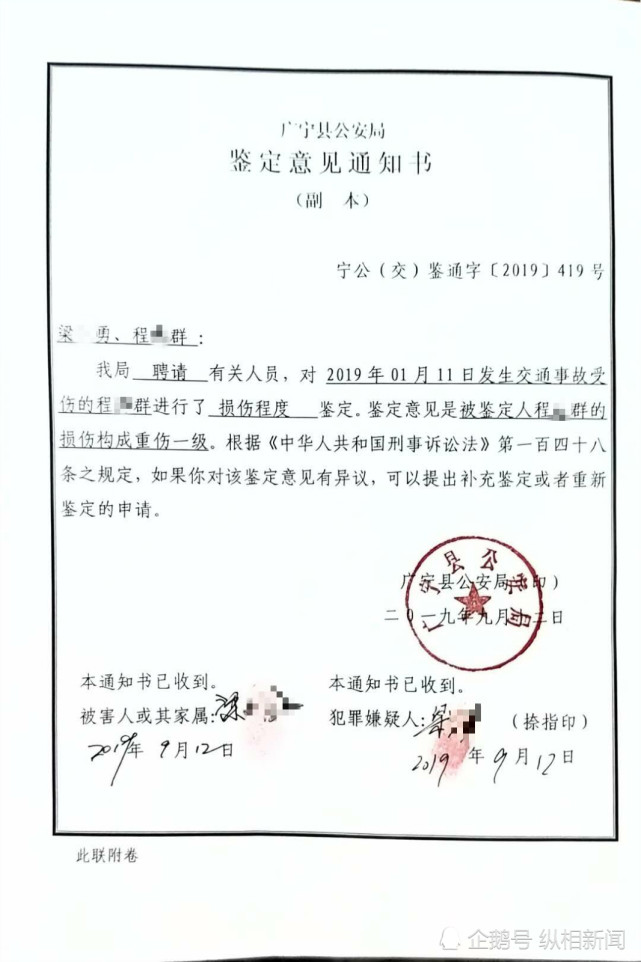 广宁县公安局
鉴定意见通知书
（副 本）
宁公（交）鉴通字〔2019〕419号
梁 勇、程 群：
我局 聘请 有关人员，对 2019年01月11日发生交通事故受
伤的程 群进行了 损伤程度 鉴定。鉴定意见是被鉴定人程 群的
损伤构成重伤一级。根据《中华人民共和国刑事诉讼法》第一百四十八
条之规定，如果你对该鉴定意见有异议，可以提出补充鉴定或者重新
鉴定的申请。
广宁县公安局 印）
二〇一九年九月 二日
广宁县公安局
本通知书已收到。
被害人或其家属：梁
2019年9月12日
本通知书已收到。
犯罪嫌疑人：梁 （捺指印）
2019年9月12日
此联附卷
企鹅号 纵相新闻